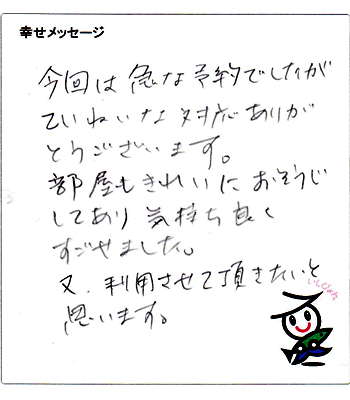 幸せメッセージ
今回は急な予約でしたが
ていねいな対応ありが
とうございます。
部屋もきれいにおそうじ
してあり気持ち良く
すごせました。
又、利用させて頂きたいと
思います。